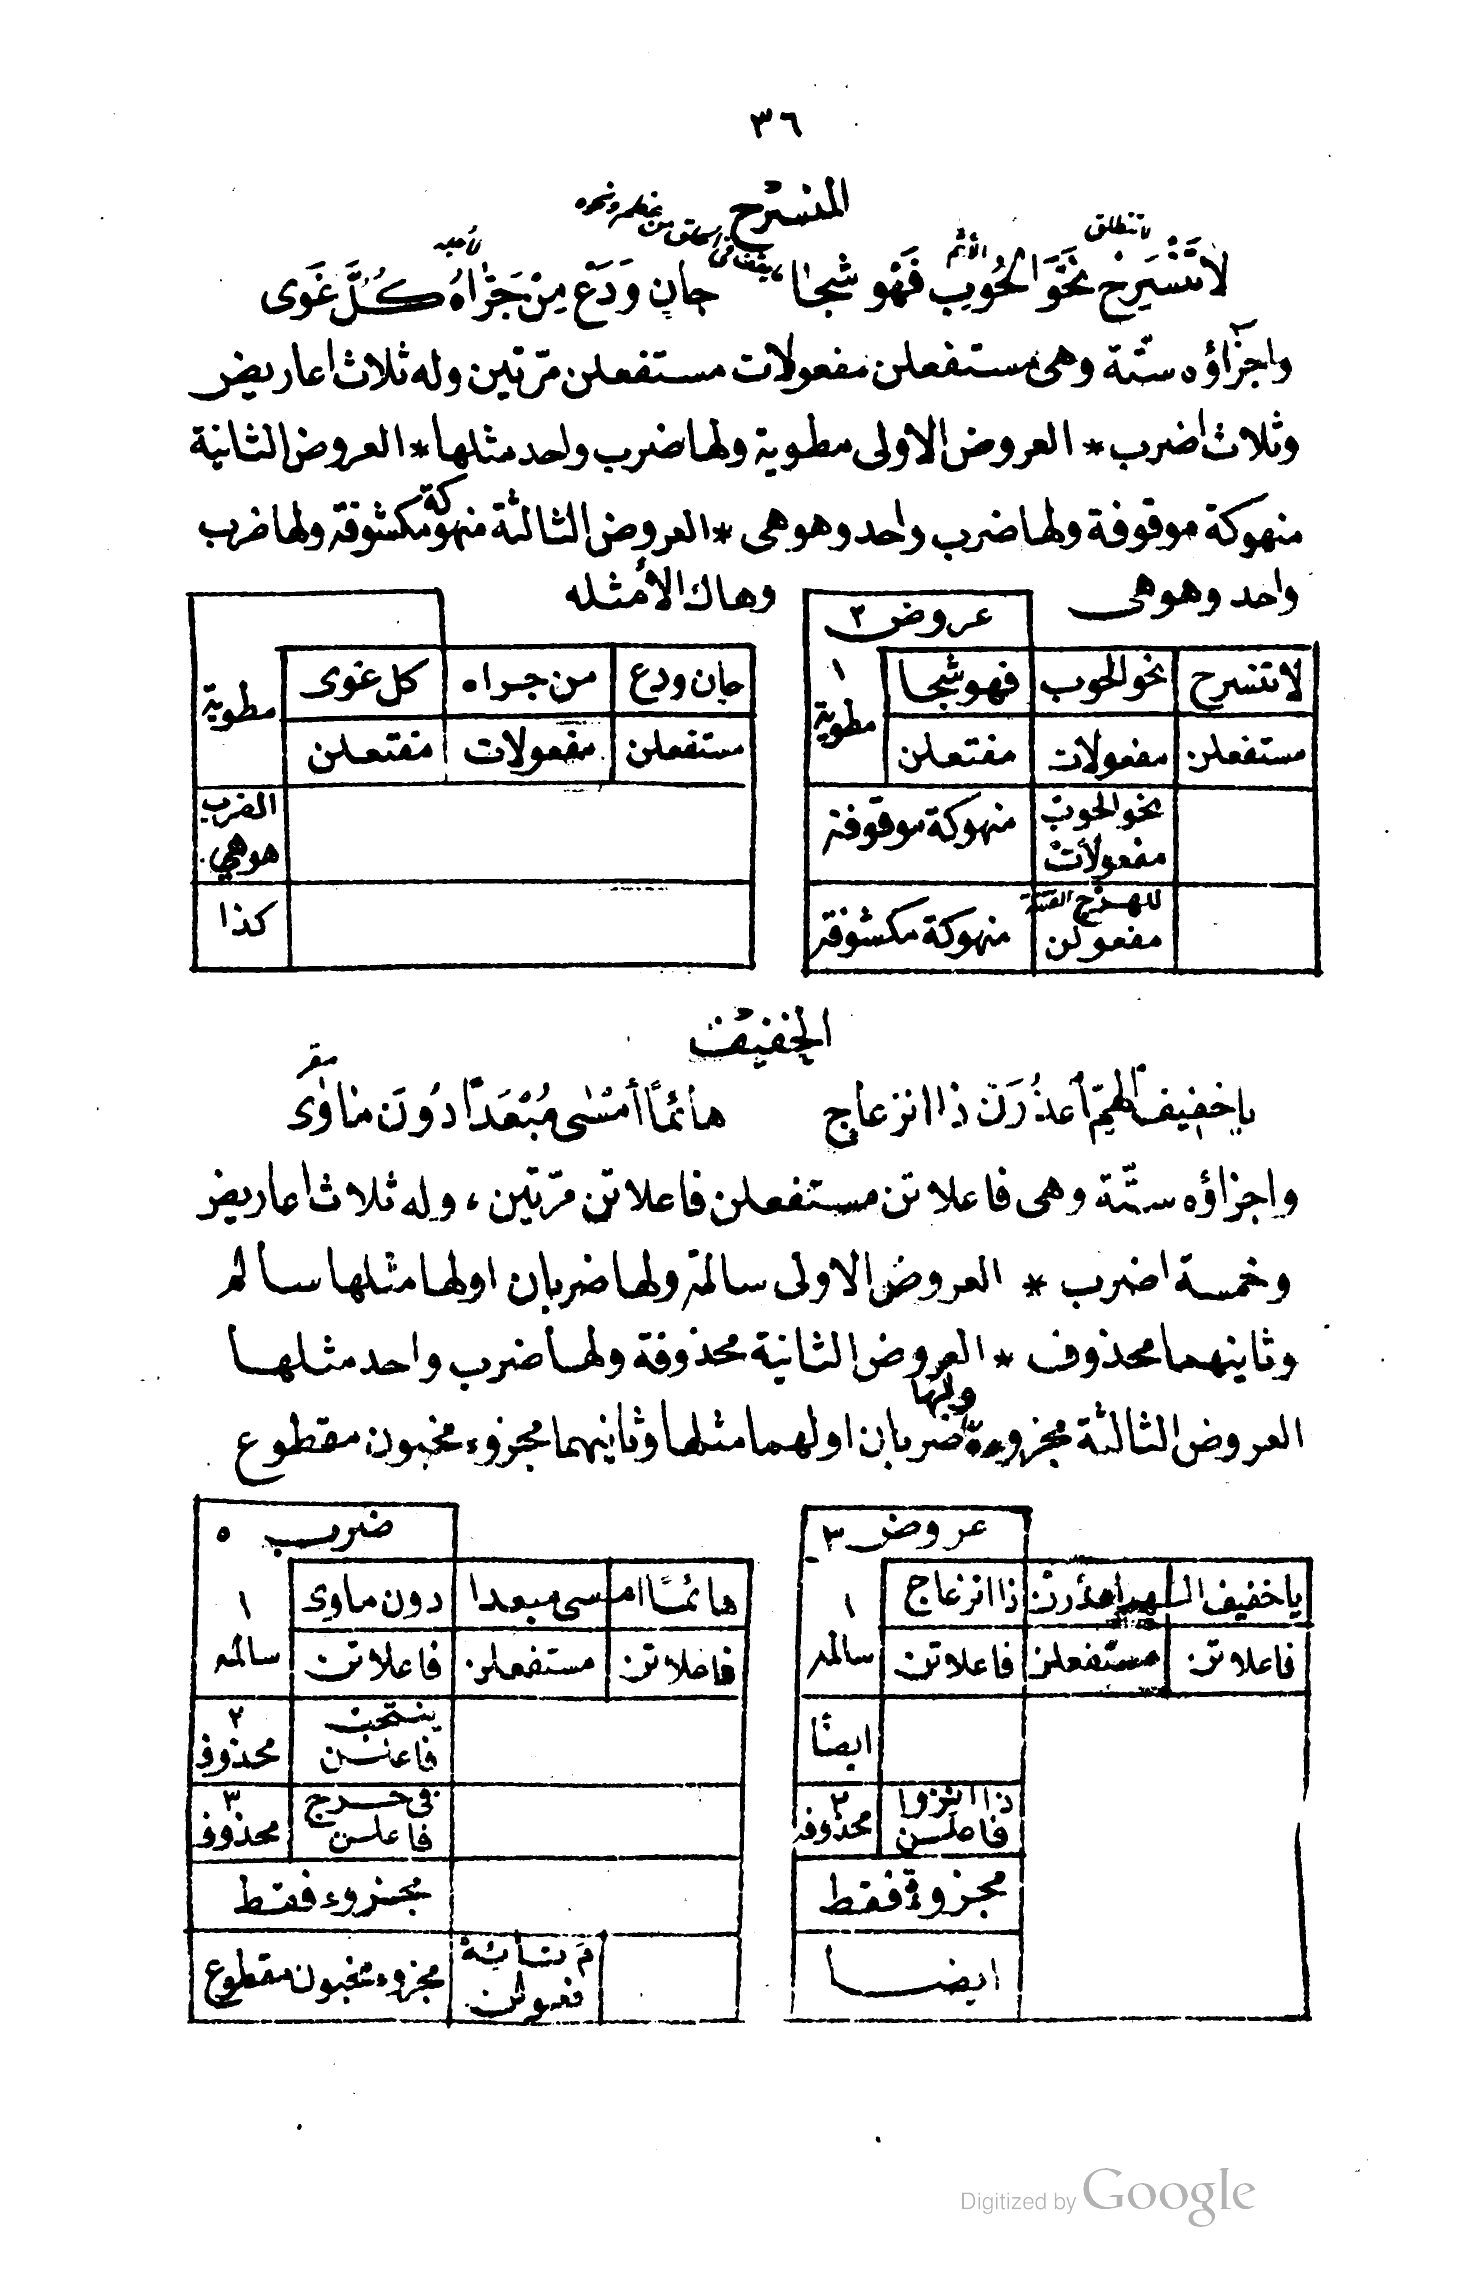 ٣٦
المنسرح
لا تنطلق
الأثم
لا تَنْسَرِحْ نَحْوَ الحُوبِ فَهْوَ شجا جانٍ وَدَعْ مِنْ جَرَّاهُ كُلَّ غَوَى
واجزاؤه ستّة وهى مستفعلن مفعولات مستفعلن مرّتين وله ثلاث اعاريض
وثلاث اضرب * العروض الاولى مطوية ولها ضرب واحد مثلها * العروض الثانية
منهوكة موقوفة ولها ضرب واحد وهو هى * العروض الثالثة منهوكة مكشوفة ولها ضرب
واحد وهو هى وهاك الأمثله
عروض ٣
لا تنسرح نحو الحوب فهو شجا ١ مطوية
مستفعلن مفعولات مفتعلن
نحو الحوب منهوكة موقوفة
مفعولات
للهزج منهوكة مكشوفة
مفعولن
جان ودع من جراه كل غوى مطوية
مستفعلن مفعولات مفتعلن
الضرب
هو هي
كذا
الخفيف
مقر
يا خفيف الهمّ اعذُرَنْ ذا انزعاج هائمًا أمسٰى مُبْعَدًا دُونَ مناوٰى
واجزاؤه ستّة وهى فاعلاتن مستفعلن فاعلاتن مرّتين، وله ثلاث اعاريض
وخمسة اضرب * العروض الاولى سالمة ولها ضربان اولها مثلها سالم
وثانيهما محذوف * العروض الثانية محذوفة ولها ضرب واحد مثلها
العروض الثالثة مجزوءة ولها ضربان اولهما مثلها وثانيهما مجزوء مخبون مقطوع
عروض ٣
يا خفيف الـ ـهم اعذرن ذا انزعاج ١
فاعلاتن مستفعلن فاعلاتن سالمة
ايضًا
ذا انزوا ٢
فاعلـن محذوفه
مجزوءة فقط
ايضـا
ضرب ٥
هائمًا امـ ـسى مبعدا دون ماوى ١
فاعلاتن مستفعلن فاعلاتن سالمة
ينتحب ٢
فاعلـن محذوف
فى حـرج ٣
فاعلـن محذوف
مجـزوء فقـط
فعولن مجزوء مخبون مقطوع
Digitized by Google